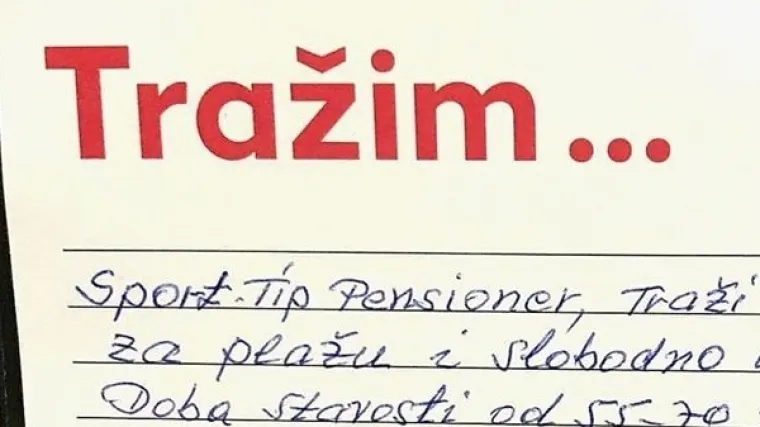 Tražim...
Sport-Tip Pensioner, Traži
za plažu i slobodno
Doba starosti od 55-70